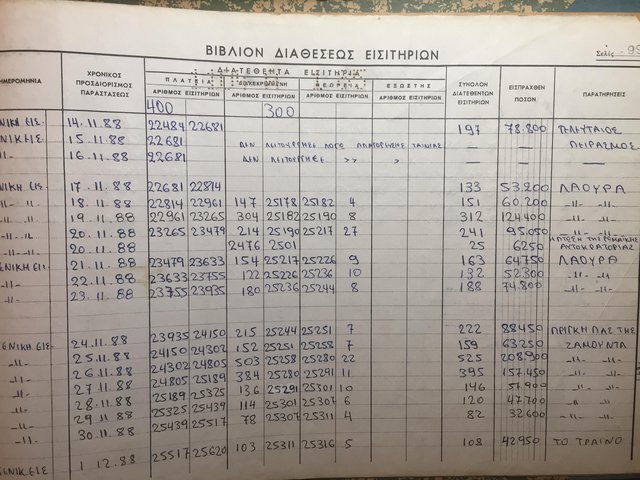 ΒΙΒΛΙΟΝ ΔΙΑΘΕΣΕΩΣ ΕΙΣΙΤΗΡΙΩΝ
Σελίς 99
ΗΜΕΡΟΜΗΝΙΑ
ΧΡΟΝΙΚΟΣ ΠΡΟΣΔΙΟΡΙΣΜΟΣ ΠΑΡΑΣΤΑΣΕΩΣ
ΔΙΑΤΕΘΕΝΤΑ ΕΙΣΙΤΗΡΙΑ
ΠΛΑΤΕΙΑ ΘΕΩΡΕΙΑ ΕΞΩΣΤΗΣ
ΑΡΙΘΜΟΣ ΕΙΣΙΤΗΡΙΩΝ ΑΡΙΘΜΟΣ ΕΙΣΙΤΗΡΙΩΝ ΑΡΙΘΜΟΣ ΕΙΣΙΤΗΡΙΩΝ ΑΡΙΘΜΟΣ ΕΙΣΙΤΗΡΙΩΝ
ΣΥΝΟΛΟΝ ΔΙΑΤΕΘΕΝΤΩΝ ΕΙΣΙΤΗΡΙΩΝ
ΕΙΣΠΡΑΧΘΕΝ ΠΟΣΟΝ
ΠΑΡΑΤΗΡΗΣΕΙΣ
400 300
ΕΝΙΚΗ ΕΙΣ. 14.11.88 22484 22681 197 78.800 ΤΕΛΕΥΤΑΙΟΣ
ΕΝΙΚΗ ΕΙΣ. 15.11.88 22681 ΔΕΝ ΛΕΙΤΟΥΡΓΗΣΕ ΛΟΓΩ ΑΠΑΓΟΡΕΥΣΗΣ ΤΑΙΝΙΑΣ — — ΠΕΙΡΑΣΜΟΣ
-11- 16.11.88 22681 ΔΕΝ ΛΕΙΤΟΥΡΓΗΣΕ >> > — — —
ΕΝΙΚΗ ΕΙΣ. 17.11.88 22681 22814 133 53.200 ΛΑΟΥΡΑ
-11- 18.11.88 22814 22961 147 25178 25182 4 151 60.200 -11- -11-
-11- 19.11.88 22961 23265 304 25182 25190 8 312 124.400 -11- -11-
-11- 20.11.88 23265 23479 214 25190 25217 27 241 95.050 -11- -11-
20.11.88 2476 2501 25 6250 Η ΠΤΩΣΗ ΤΗΣ ΡΩΜΑΪΚΗΣ ΑΥΤΟΚΡΑΤΟΡΙΑΣ
ΓΕΝΙΚΗ ΕΙΣ. 21.11.88 23479 23633 154 25217 25226 9 163 64750 ΛΑΟΥΡΑ
-11- 22.11.88 23633 23755 122 25226 25236 10 132 52.300 -11- -11-
-11- 23.11.88 23755 23935 180 25236 25244 8 188 74.800 -11- -11-
ΓΕΝΙΚΗ ΕΙΣ. 24.11.88 23935 24150 215 25244 25251 7 222 88450 ΠΡΙΓΚΗΠΑΣ ΤΗΣ
-11- 25.11.88 24150 24302 152 25251 25258 7 159 63250 ΖΑΜΟΥΝΤΑ
-11- 26.11.88 24302 24805 503 25258 25280 22 525 208.900 -11- -11-
-11- 27.11.88 24805 25189 384 25280 25291 11 395 157.450 -11- -11-
-11- 28.11.88 25189 25325 136 25291 25301 10 146 57.900 -11- -11-
-11- 29.11.88 25325 25439 114 25301 25307 6 120 47.700 -11- -11-
-11- 30.11.88 25439 25517 78 25307 25311 4 82 32.600 -11- -11-
ΓΕΝΙΚ ΕΙΣ 1.12.88 25517 25620 103 25311 25316 5 108 42950 ΤΟ ΤΡΑΙΝΟ